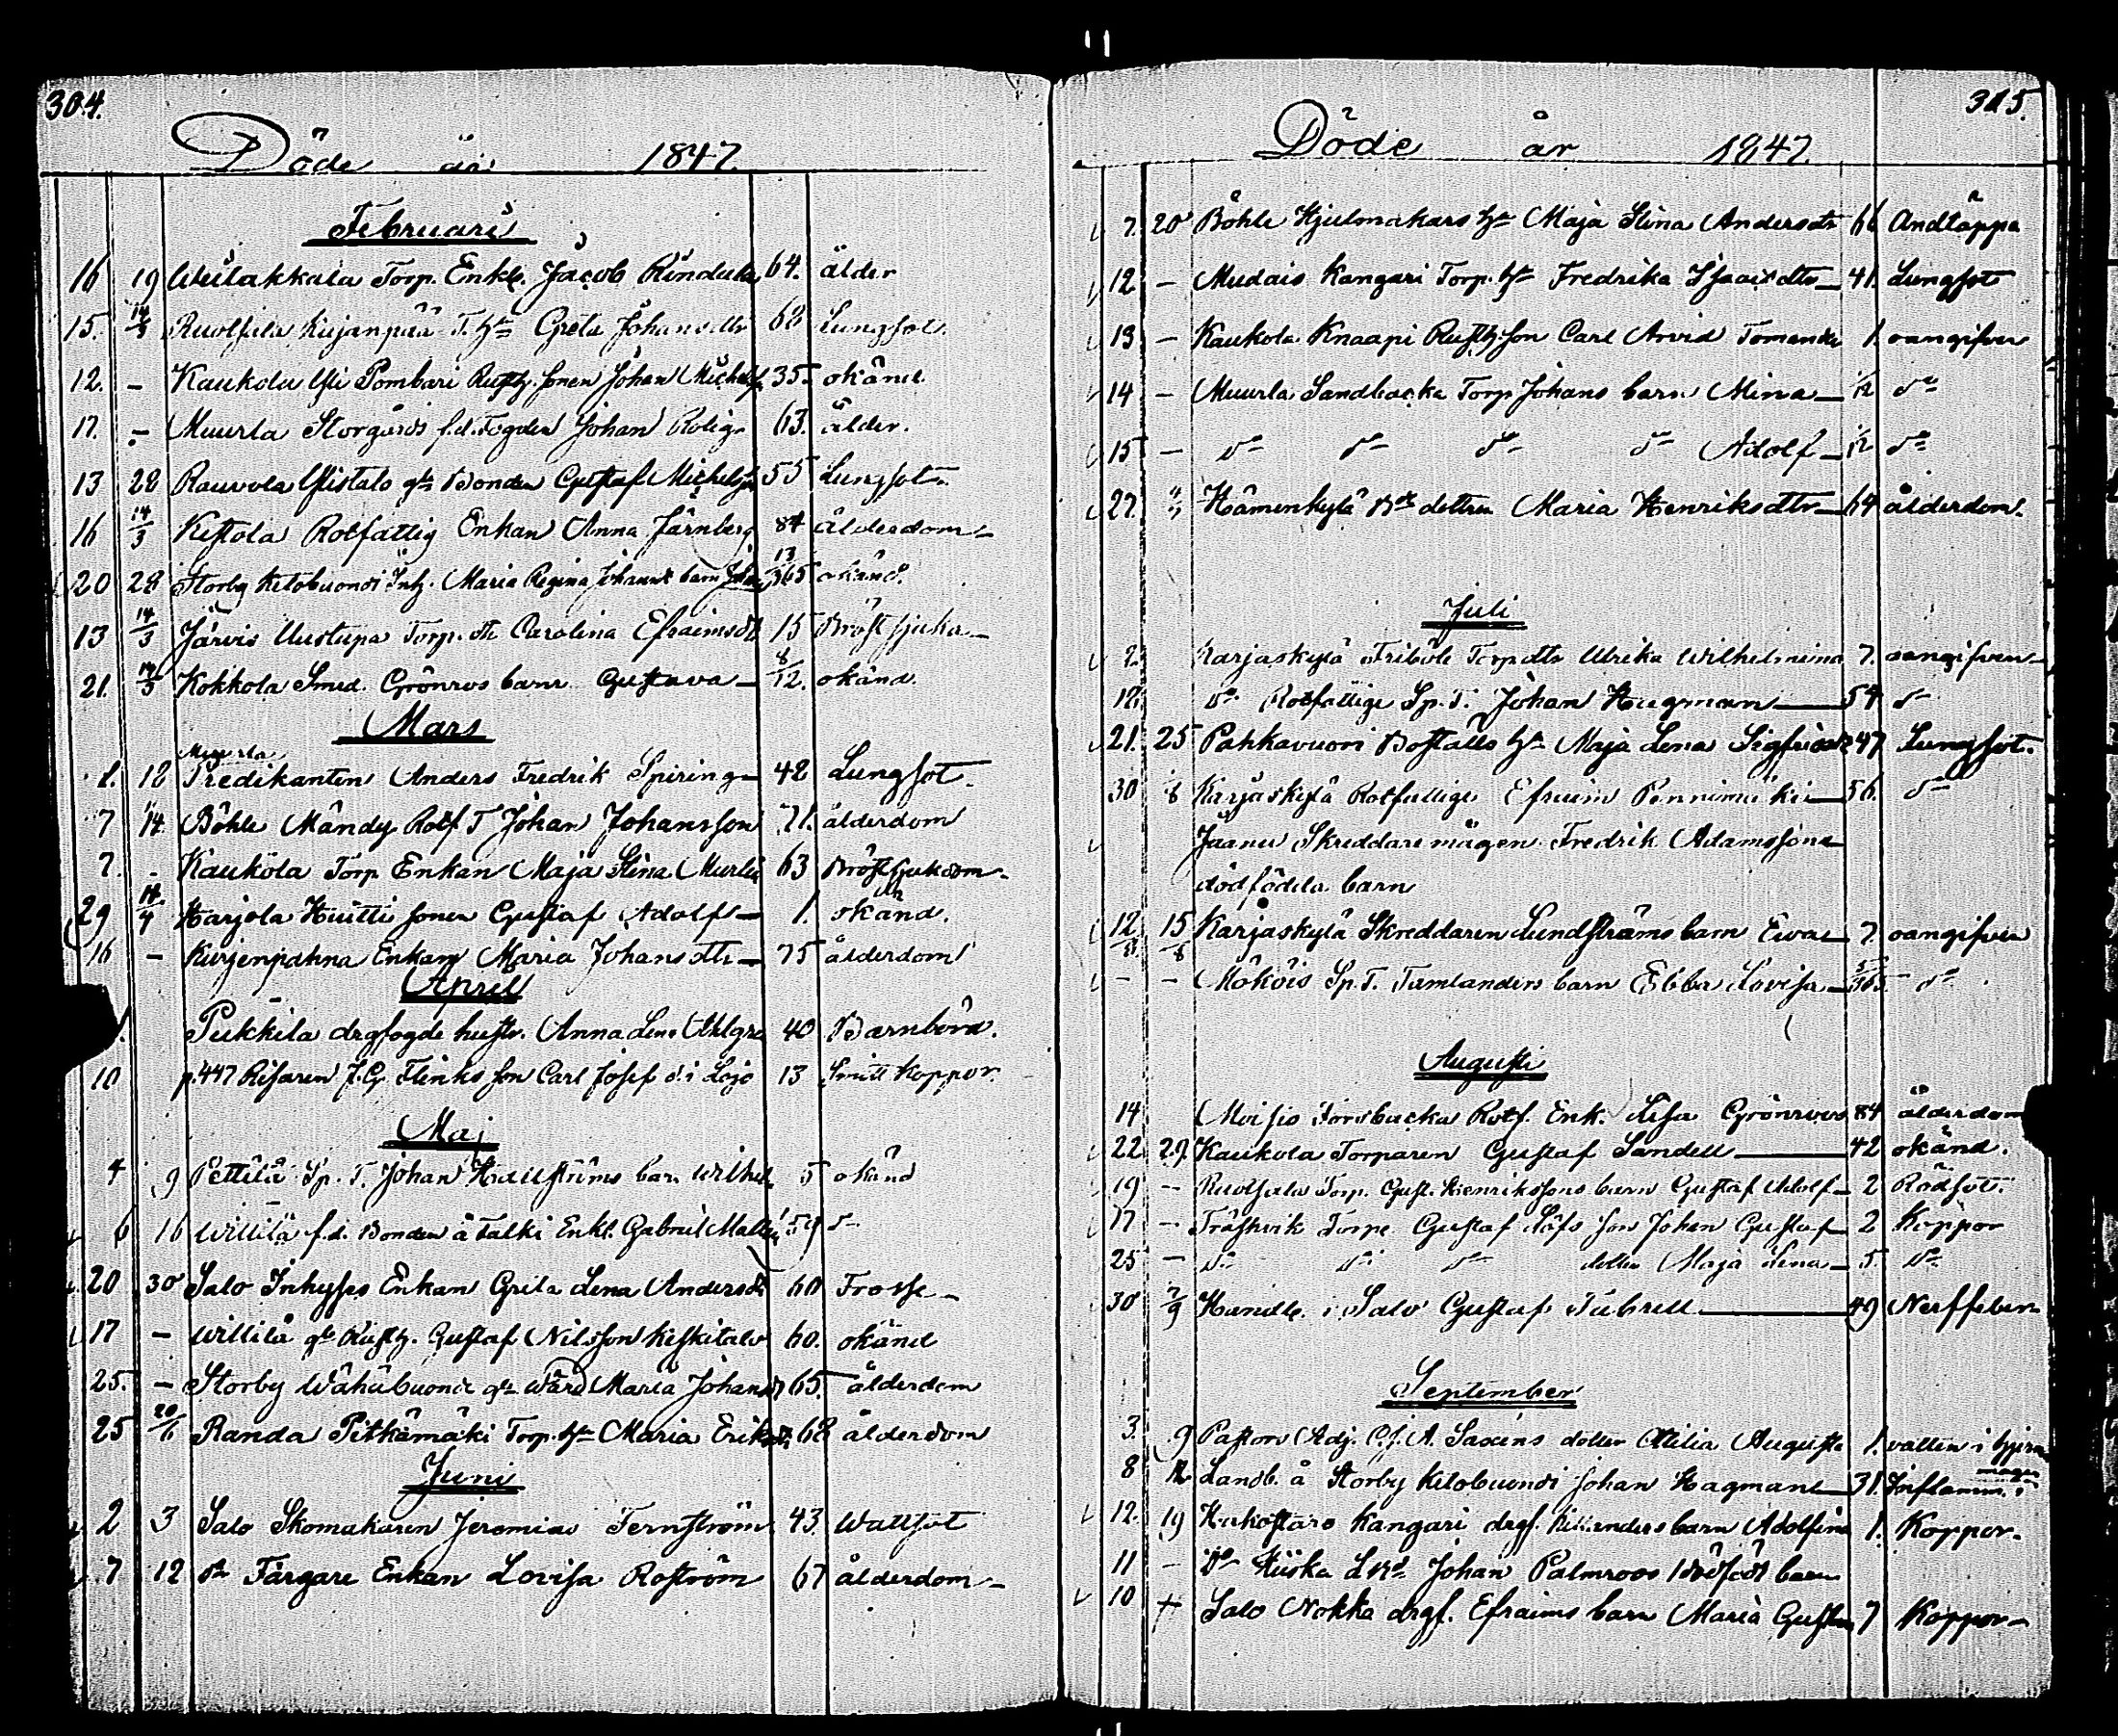 304.
Döde år 1847.
Februari
16 19 Torp. Enkl. Jacob 64. ålder
15. 14/3 Kujanpää T. h:u Greta Johansdtr 68 Lungsot.
12. - Kaukola Yli Pombari Rusth. sonen Johan Michelss 35. okänd.
17. - Muurla Storgårds f.d. Fogden Johan Rolig 63. ålder.
13 28 Bonden Gustaf Michelss 55 Lungsot.
16 14/3 Kestola Rotfattig Enkan Anna Järnberg 84 ålderdom
20 28 Storby Ketobuondi Inh. Maria Regina Johansdr barn 13/365 okänd.
13 14/3 Järvis Uustupa Torp. dtr Carolina Efraimsdr 15 Bröstsjuka
21. 14/3 Kokkola Smed. Grönros barn Gustava 8/12. okänd.
Mars
Muurla
1. 12 Predikanten Anders Fredrik Spiring 42 Lungsot.
7 14. Böhle Mändy Rotf T Johan Johansson 71. ålderdom
7. - Kaukola Torp Enkan Maja Stina 63 Bröstsjukdom
29 14/4 Karjola Huitti sonen Gustaf Adolf 1. okänd.
16 - Kurjenpahna Enkan Maria Johansdtr 75 ålderdom
April
1. Pukkila drgfogde hustr. Anna Lena Ahlgren 40 Barnbörd.
10 p.447 Risaren J. G. Flinks son Carl Josef d. i Lojo 13 Smitt koppor.
Maj
4 9 Pettilä Sp. T. Johan Hallströms barn Wilhel. 5 okänd
6 16 Willilä f.d. Bonden å Talki Enkl. Gabriel 59 d:o
20 30 Salo Inhyses Enkan Greta Lena Andersdr 60 Frosse
17 - Willilä Rusth. Gustaf Nilsson Keskitalo 60. okänd
25. - Storby Wähäbuondi Maria Johansdr 65. ålderdom
25 20/6 Randa Pitkämäki Torp. h:u Maria Eriksdr 68 ålderdom
Juni
2 3 Salo Skomakaren Jeremias Fernström 43. Wattsot
7 12 d:o Färgare Enkan Lovisa Roström 67 ålderdom
315.
Döde år 1847.
7. 20 Böhle Hjulmakars h:u Maja Stina Andersdr 66 Andtäppa
12 - Mudais Kangari Torp. h:u Fredrika Isaacsdtr 41. Lungsot
13 - Kaukola Knaapi Rusth. son Carl Arvid 1. oangifven
14 - Muurla Sandbacka Torp. Johans barn Mina 1/2 d:o
15 - d:o d:o d:o d:o Adolf 1/2 d:o
27. " Hämenkylä dottren Maria Henriksdtr 64 ålderdom.
Juli
2. Karjaskylä Torp dtr Ulrika Wilhelmina 7. oangifven
12. d:o Rotfattige Sp. T. Johan Hagman 54 d:o
21. 25 Pahkavuori Boställs h:u Maja Lena Sigfridsdr 47. Lungsot.
30 8 Karjaskylä Rotfattige Efraim 56. d:o
Jaanu Skreddare mågen Fredrik Adamssons
dödfödda barn
12/8 15/8 Karjaskylä Skreddaren Lundströms barn Ewa 7. oangifven
- - Mököis Sp. T. Tamlanders barn Ebba Lovisa d:o
Augusti
14 Rotf. Enk. Lisa Grönroos 84 ålderdom
22 29. Kaukola Torparen Gustaf Sandell 42 okänd.
19 - Torp. Gust. Henrikssons barn Gustaf Adolf 2 Rödsot.
17 - Torp. Gustaf son Johan Gustaf 2 Koppor
25 - d:o d:o d:o dotter Maja Lena 5. d:o
30 7/9 Handl. i Salo Gustaf 49 Nerffeber
September
3. 9 Pastors Adj. C. J. A. dotter Augusta 1. vatten i hjernan
8 12 Landb. å Storby Ketobuondi Johan Hagman 31. Inflamm. i
magen
12. 19 Kangari drgf. barn Adolfina 1. Koppor.
11 - d:o Johan Palmroos dödfödt barn
10 + Salo Nokka drgf. Efraims barn Maria 7 Koppor